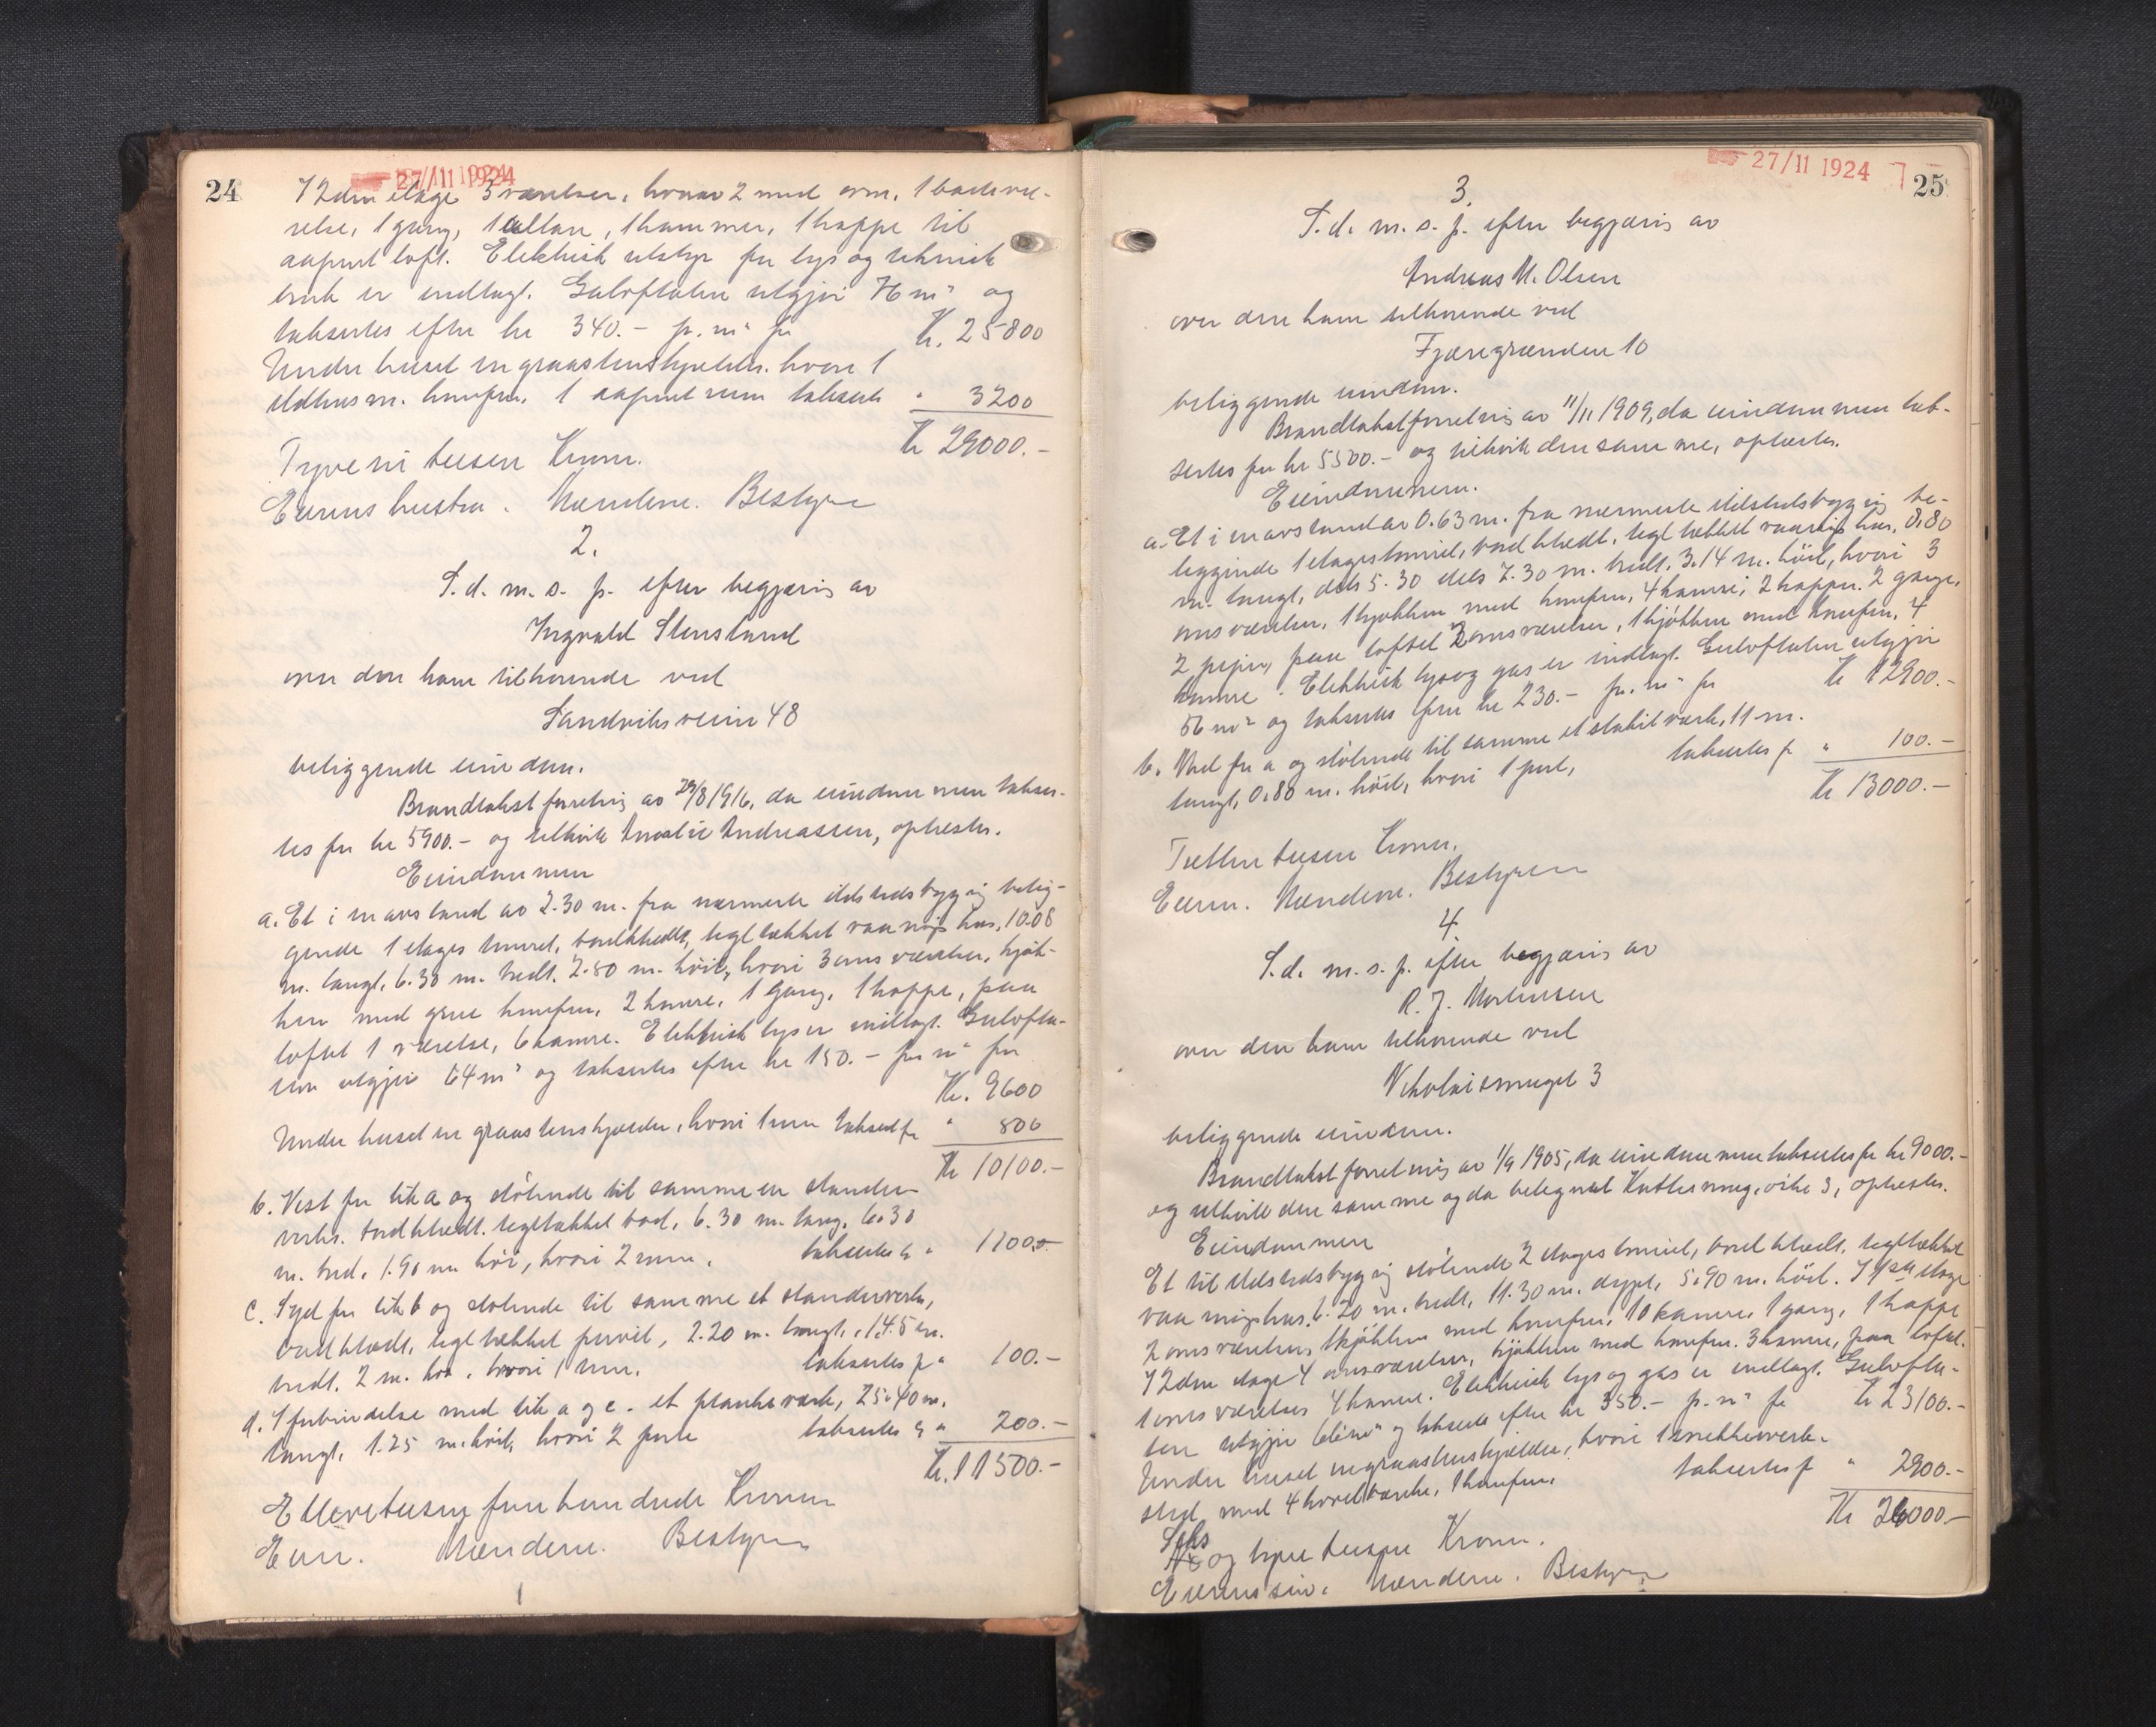 24
27/11 1924
I 2den etage 3 værelser, hvorav 2 med ovn, 1 badevæ-
relse, 1 gang, 1 altan, 1 kammer, 1 trappe til
aapent loft. Elektrisk utstyr for lys og teknisk
bruk er indlagt. Gulvflaten utgjør 76 m² og
takseres efter kr 340.- pr. m² for Kr. 25800
Under huset en graastenskjelder, hvori 1
ildhus m. komfur, 1 aapent rum takseret " 3200
Kr 29000.-
Tyve ni tusen Kroner.
Eierens hustru. Mændene. Bestyrer
2.
S.d. m. s. p. efter begjæring av
Ingvald Stensland
over den ham tilhørende ved
Sandviksveien 48
beliggende eiendom.
Brandtakstforretning av 29/8 1916, da eiendommen takser-
tes for kr 5900.- og tilhørte Amalie Andreassen, oplæstes.
Eiendommen
a. Et i en avstand av 2.30 m. fra nærmeste ildstedsbygning belig-
gende 1 etages tømret, bordklædt, tegltækket vaaningshus, 10.08
m. langt, 6.30 m. bredt, 2.80 m. höit, hvori 3 ovnsværelser, kjøk-
ken med grue komfur, 2 kamre, 1 gang, 1 trappe, paa
loftet 1 værelse, 6 kamre. Elektrisk lys er indlagt. Gulvfla-
ten utgjør 64 m² og takseres efter kr 150.- pr m² for
Kr. 9600
Under huset en graastenskjelder, hvori 1 rum takseret for " 800
Kr 10100.-
b. Vest for litr a og stötende til samme en stender-
verks, bordklædt, tegltækket bod, 6.30 m. lang, 6.30
m. bred, 1.90 m. höi, hvori 2 rum, takseres for " 1100.-
c. Syd for litr b og stötende til samme et stenderverks,
bordklædt, tegltækket privet, 2.20 m. langt, 1.45 m.
bredt, 2 m. höit, hvori 1 rum. takseres for " 100.-
d. I forbindelse med litr a og c. et plankeværk, 25.40 m.
langt, 1.25 m. höit, hvori 2 porte takseres for " 200.-
Kr. 11500.-
Ellevetusen fem hundrede Kroner
Eier. Mændene. Bestyrer
27/11 1924
25
3.
S.d. m. s. p. efter begjæring av
Andreas M. Olsen
over den ham tilhørende ved
Fjæregrænden 10
beliggende eiendom.
Brandtakstforretning av 11/11 1909, da eiendommen tak-
sertes for kr 5500.- og tilhørte den samme, oplæstes.
Eiendommen.
a. Et i en avstand av 0.63 m. fra nærmeste ildstedsbygning be-
liggende 1 etages tømret, bordklædt, tegltækket vaaningshus, 8.80
m. langt, dels 5.30 dels 7.30 m. bredt, 3.14 m. höit, hvori 3
ovnsværelser, 1 kjøkken med komfur, 4 kamre, 2 trapper, 2 gange,
2 piper, paa loftet 2 ovnsværelser, 1 kjøkken med komfur, 4
kamre. Elektrisk lys og gas er indlagt. Gulvflaten utgjør
56 m² og takseres efter kr 230.- pr. m² for Kr 12900.-
b. Nord for a og stötende til samme et stakitværk, 11 m.
langt, 0.80 m. höit, hvori 1 port, takseres for " 100.-
Kr 13000.-
Tretten tusen Kroner.
Eieren. Mændene. Bestyreren
4.
S.d. m. s. p. efter begjæring av
R. J. Mortensen
over den ham tilhørende ved
Nikolaismuget 3
beliggende eiendom.
Brandtakstforretning av 1/9 1905, da eiendommen takseres for kr 9000.-
og tilhørte den samme og da betegnet 3, oplæstes.
Eiendommen
Et til ildstedsbygning stötende 2 etages tømret, bordklædt, tegltækket
vaaningshus, 6.20 m. bredt, 11.30 m. dypt, 5.90 m. höit. I 1ste etage
2 ovnsværelser, 1 kjøkken med komfur, 10 kamre, 1 gang, 1 trappe
I 2den etage 4 ovnsværelser, kjøkken med komfur, 3 kamre, paa loftet
1 ovnsværelse 4 kamre. Elektrisk lys og gas er indlagt. Gulvfla-
ten utgjør 66 m² og takseres efter kr 350.- pr. m² for Kr 23100.-
Under huset en graastenskjelder, hvori 1 snekkerverk-
sted med 4 høvelbænke, 1 komfur. takseres for " 2900.-
Kr 26000.-
Seks
og tyve tusen Kroner.
Eierens søn. Mændene. Bestyrer